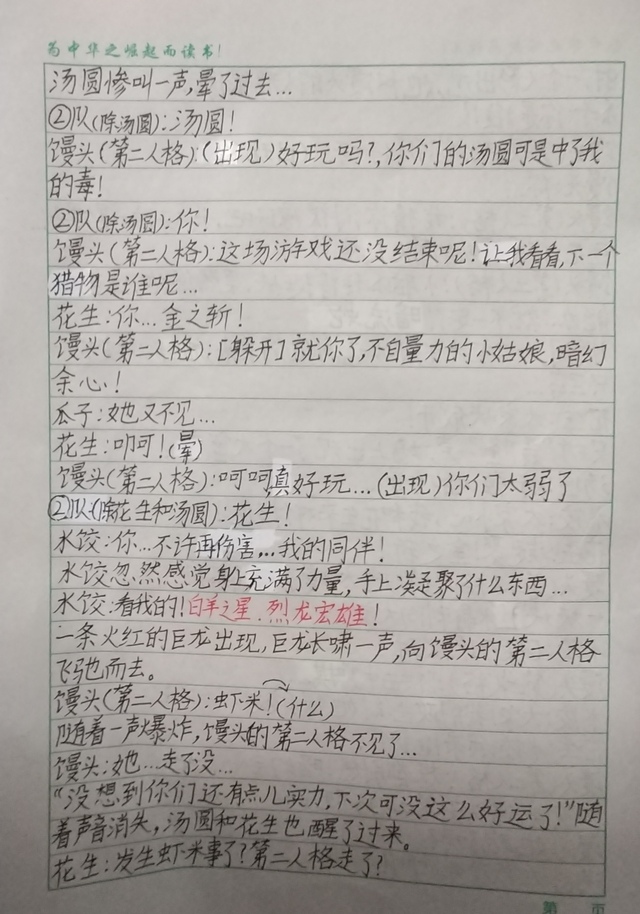 为中华之崛起而读书!
汤圆惨叫一声,晕了过去...
②队(除汤圆):汤圆!
馒头(第二人格):(出现)好玩吗?,你们的汤圆可是中了我
的毒!
②队(除汤圆):你!
馒头(第二人格):这场游戏还没结束呢!让我看看,下一个
猎物是谁呢...
花生:你...金之斩!
馒头(第二人格):[躲开]就你了,不自量力的小姑娘,暗幻
余心!
瓜子:她又不见...
花生:叩可!(晕)
馒头(第二人格):呵呵,真好玩...(出现)你们太弱了
②队(除花生和汤圆):花生!
水饺:你...不许再伤害...我的同伴!
水饺忽然感觉身上充满了力量,手上凝聚了什么东西...
水饺:看我的!白羊之星.烈龙宏雄!
一条火红的巨龙出现,巨龙长啸一声,向馒头的第二人格
飞驰而去。
馒头(第二人格):虾米!(什么)
随着一声爆炸,馒头的第二人格不见了...
馒头:她...走了没...
“没想到你们还有点儿实力,下次可没这么好运了!”随
着声音消失,汤圆和花生也醒了过来。
花生:发生虾米事了?第二人格走了?
第 页